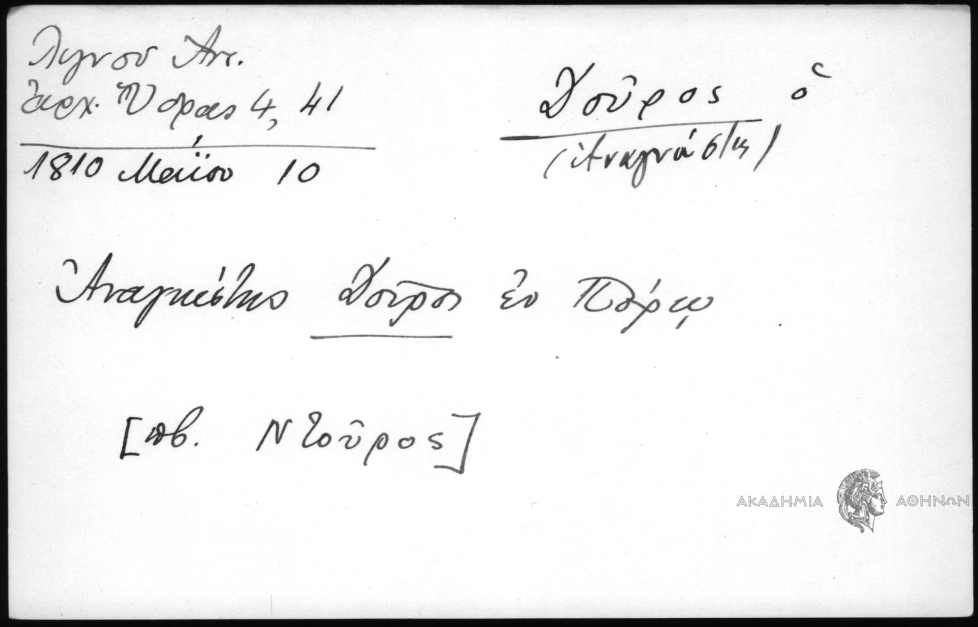 Λιγνού Αντ.
Ἀρχ. Ὕδρας 4, 41
1810 Μαΐου 10
Δοῦρος ὁ
(Ἀναγνώστης)
Ἀναγνώστης Δοῦρος ἐν Πόρῳ
[πβ. Ντοῦρος]
ΑΚΑΔΗΜΙΑ ΑΘΗΝΩΝ